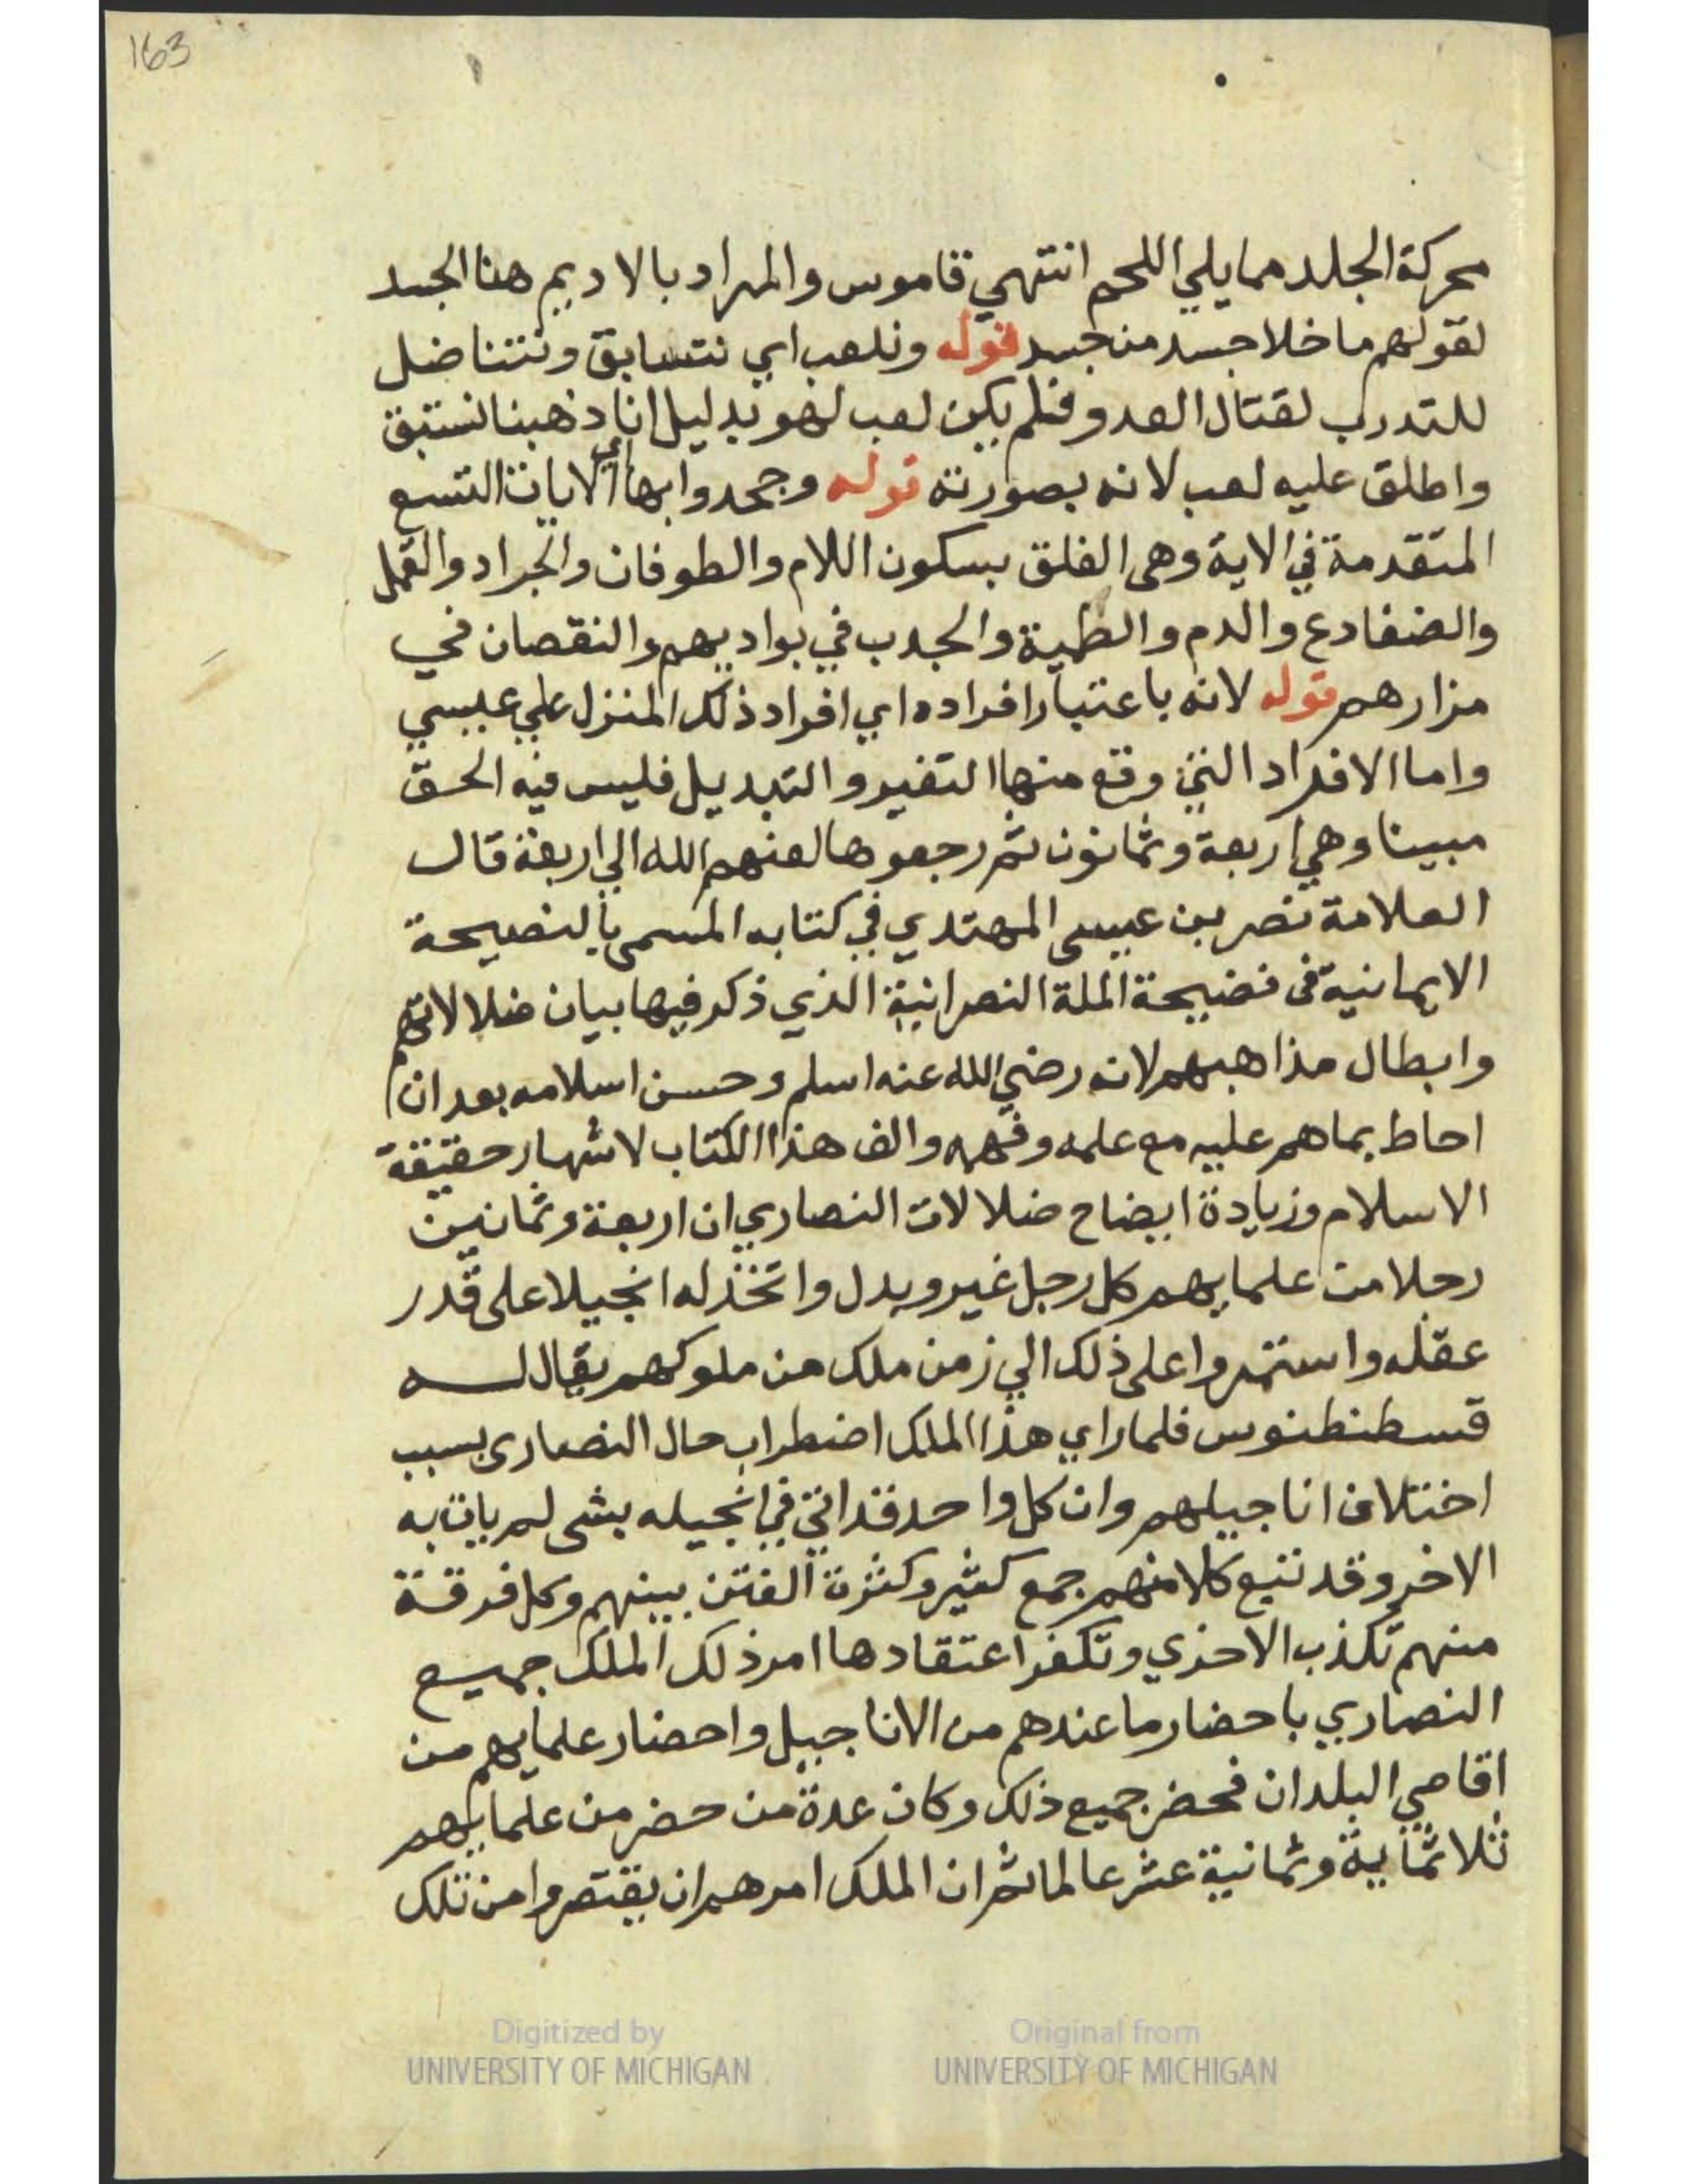 163
محركة الجلد مما يلي اللحم انتهي قاموس والمراد بالاديم هنا الجسد
لقولهم ما خلا جسد من جسد قوله ونلعب اي نتسابق ونتناضل
للتدرب لقتال العدو فلم يكن لعب لهو بدليل انا ذهبنا نستبق
واطلق عليه لعب لانه بصورته قوله وجحدوا بها اي الايات التسع
المتقدمة في الاية وهى الفلق بسكون اللام والطوفان والجراد والقمل
والضفادع والدم والطمية والجدب في بواديهم والنقصان في
مزارهم قوله لانه باعتبار افراده اي افراد ذلك المنزل علي عيسي
واما الافراد التي وقع منها التغير والتبديل فليس فيه الحق
مبينا وهي اربعة وثمانون ثم رجعوها لعنهم الله الي اربعة قال
العلامة نصر بن عيسى المهتدي في كتابه المسمى بالنصيحة
الايمانية فى فضيحة الملة النصرانية الذي ذكر فيها بيان ضلالاتهم
وابطال مذاهبهم لانه رضي الله عنه اسلم وحسن اسلامه بعد ان
احاط بما هم عليه مع علمه وفهمه والف هذا الكتاب لاشهار حقيقة
الاسلام وزيادة ايضاح ضلالات النصاري ان اربعة وثمانين
رجلا من علمايهم كل رجل غير وبدل واتخذ له انجيلا على قدر
عقله واستمروا على ذلك الي زمن ملك من ملوكهم يقال له
قسطنطنوس فلما راي هذا الملك اضطراب حال النصارى بسبب
اختلاف اناجيلهم وان كل واحد قد اتي في انجيله بشى لم يات به
الاخر وقد تتبع كلا منهم جمع كثير وكثرة الفتن بينهم وكل فرقة
منهم تكذب الاخري وتكفر اعتقادها امر ذلك الملك جميع
النصاري باحضار ما عندهم من الاناجيل واحضار علمايهم من
اقاصي البلدان فحضر جميع ذلك وكان عدة من حضر من علمايهم
ثلاثماية وثمانية عشر عالما ثم ان الملك امرهم ان يقتصروا من تلك
Digitized by
UNIVERSITY OF MICHIGAN
Original from
UNIVERSITY OF MICHIGAN